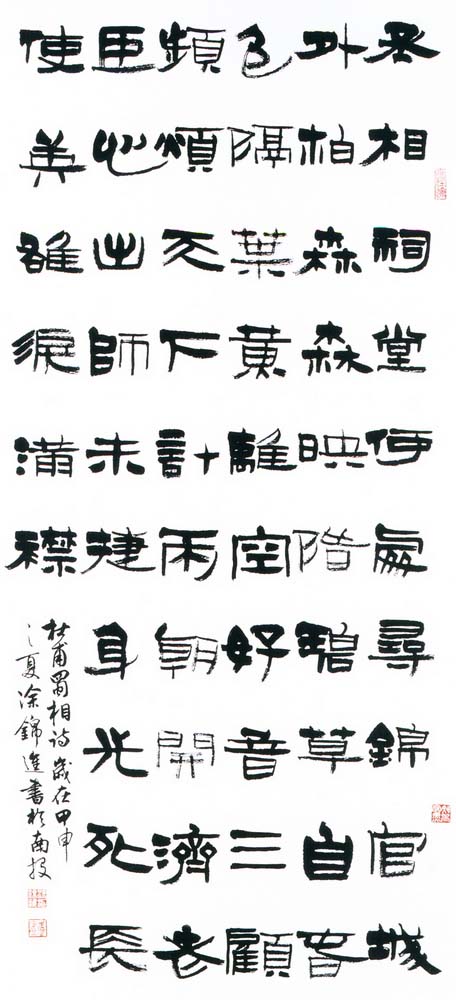 丞相祠堂何處尋錦官城
外柏森森映階碧草自春
色隔葉黃離空好音三顧
頻煩天下計兩朝開濟老
臣心出師未捷身先死長
使英雄淚滿襟
杜甫蜀相詩歲在甲申
之夏涂錦進書於南投